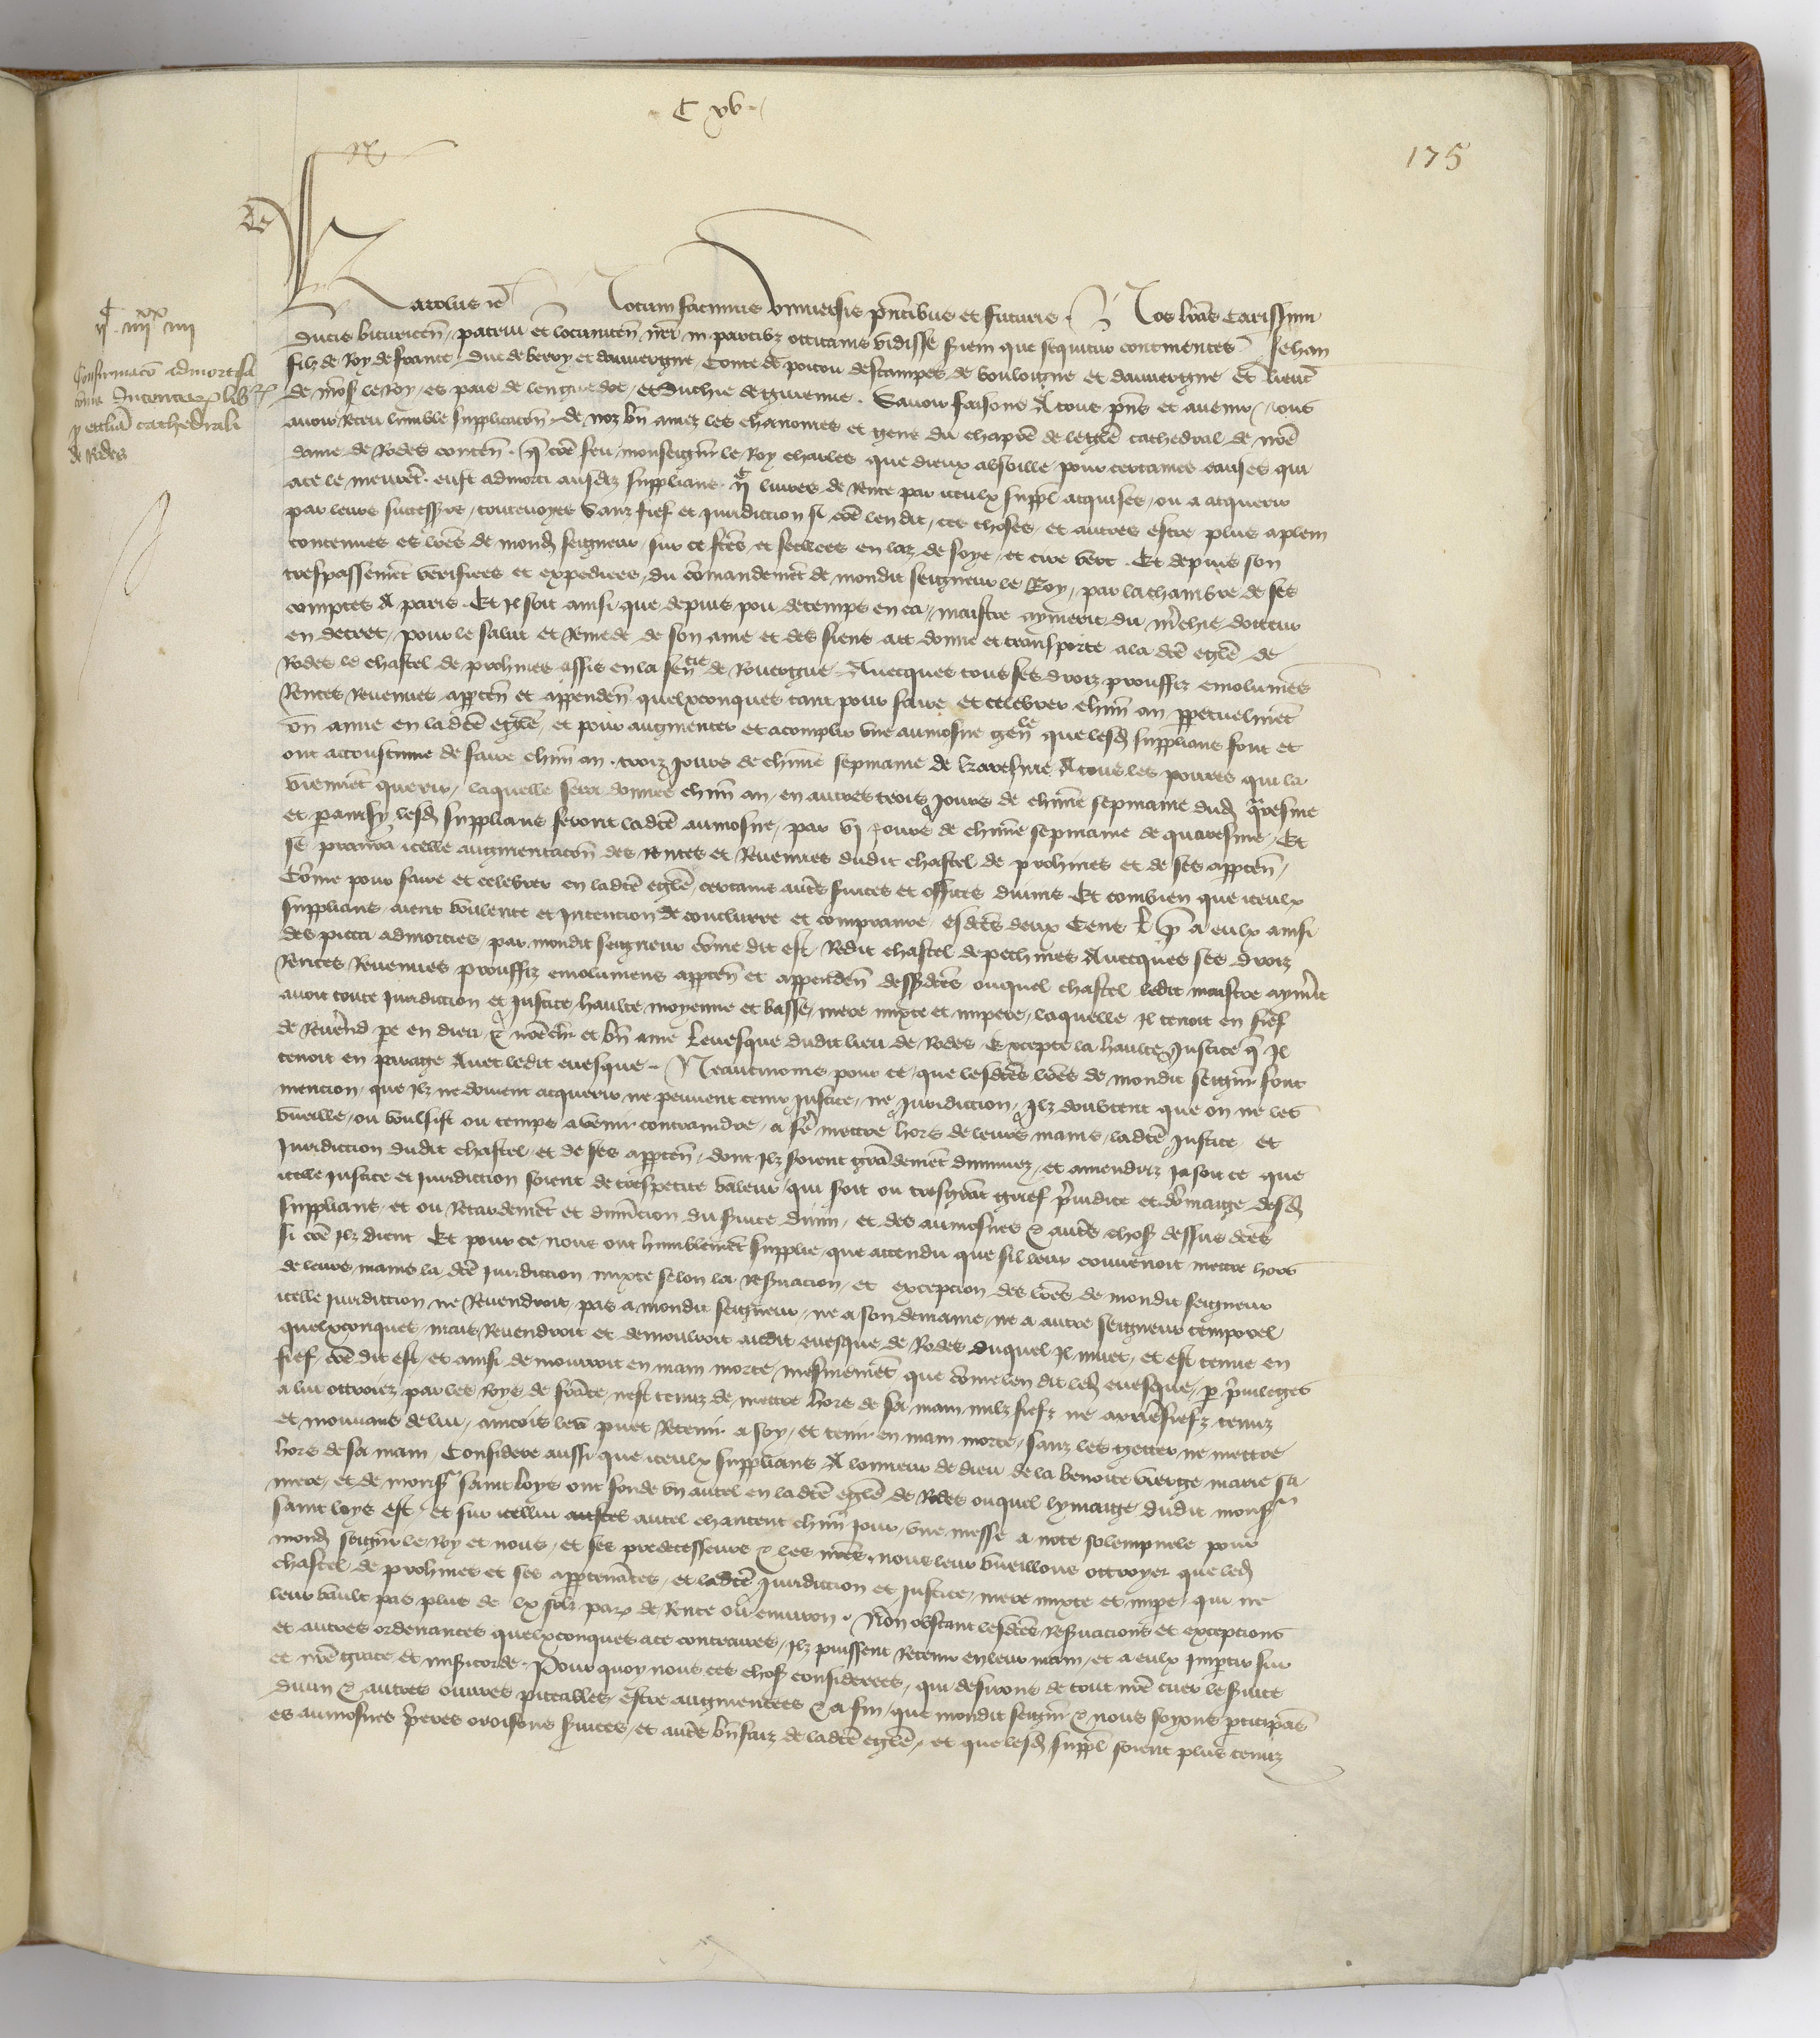 C xv
175
Karolus et̃c Notum facimus Universis pñtibus et futuris Nos lr̃as Carissimi
Ducis bituricen̄ patrui et locumten̄ nr̃i in partibz occitanis vidisse sẽm que sequitur continentes Jehan
filz de Roy de france Duc de berry et dauvergne Conte de poitou destampes de bouloigne et dauvergne et lieut̃
de mons̃ le Roy es pais de lenguedoc et Duchie de guienne. Savoir faisons A tous pñs et avenir nous
avoir receu lumble supplicacõn de noz bñ amez les chanoines et gens du chapr̃e de leglẽ cathedral de nr̃e
dame de Rodes conten̄ q̃ cõe feu monseignr̃ le Roy charles que dieux absoille pour certaines causes qui
ace le meurẽt eust admorti ausdiz supplians ijc livres de rente par iceulx suppl̃ acquises ou a acquerir
par leurs successrs toutevoyes sanz fief et juridiccion si cõe len dit ces choses et autres estre plus aplein
contenues es lr̃es de mond̃ seigneur sur ce fc̃es et seellees en laz de soye et cire vert Et depuis son
trespassemẽt verifiees et expediees du cõmandemẽt de mondit seigneur le Roy par la chambre de ses
comptes A paris Et Il soit ainsi que depuis pou de temps en ca maistre aymeric du docteur
en decret pour le salut et remede de son ame et des siens ait donne et transporte ala dc̃e eglẽ de
Rodes le chastel de prohines assis en la sen̄cie de Rouergue Avecques tous ses droiz prouffiz emolumẽs
Rentes Revenues apptẽn et appendẽn quelxconques tant pour faire et celebrer chũn an ppetuelmẽt
on anniv̄ en ladc̃e eglẽ et pour augmenter et acomplir une aumosne gen̄le que lesd̃ supplians font et
ont accoustume de faire chũn an trois Jours de chũne sepmaine de karesme A tous les povres qui la
viennẽt querir laquelle sera donnee chũn an en autres trois Jours de chũne sepmaine dud̃ qaresme
et p ainsi lesd̃ supplians feront ladc̃e aumosne par vj Jours de chũne sepmaine de quaresme Et
se pranra icelle augmentacõn des rentes et Revenues dudit chastel de prohines et de ses apptẽn
Cõme pour faire et celebrer en ladc̃e eglẽ certains autẽs svices et offices divins Et combien que iceulx
supplians aient voulente et Intencion de conclurre et comprandre esdc̃es deux Cens l̃ p̃ a eulx ainsi
des pieca admorties par mondit seigneur cõme dit est ledit chastel de pechines Avecques ses droiz
Rentes Revenues prouffiz emolumens apptẽn et appendẽn dessdc̃es ouquel chastel ledit maistre aymẽric
avoit toute juridiccion et Justice haulte moyenne et basse mere mixte et impere laquelle Il tenoit en fief
de Reverẽnd pe en dieu et nr̃e chr̃ et bñ ame Levesque dudit lieu de Rodes Excepte la haulte Justice q̃ Il
tenoit en parage Avec ledit evesque Neantmoins pour ce que lesdc̃es lr̃es de mondit seignr̃ font
mencion que Ilz ne doivent acquerir ne peuvent tenir Justice ne Juridiccion Ilz doubtent que on ne les
vueille ou voulsist ou temps avenir contraindre a fẽ mettre hors de leurs mains ladc̃e Justice et
Juridiccion dudit chastel et de ses apptẽn dont Ilz soient grãdemẽt diminuez et amendriz Jasoit ce que
icelle Justice et juridiccion soient de trespetite valeur qui soit ou tresgrãt grief p̃judice et dõmaige desd̃
supplians et ou Retardemẽt et dim̃cion du svice divin et des aumosnes et autẽs chos̃ dessus dc̃es
si cõe Ilz dient Et pour ce nous ont humblemẽt supplie que attendu que sil leur convenoit mettre hors
de leurs mains la dc̃e juridiccion mixte selon la reservacion et excepcion des lr̃es de mondit seigneur
icelle juridiccion ne Revendroit pas a mondit seigneur ne a son demaine ne a autre seigneur temporel
quelxconques mais Revendroit et demourroit audit evesque de Rodes duquel Il muet et est tenue en
fief cõe dit est et ainsi demourroit en main morte mesmemẽt que cõme len dit led̃ evesque p p̃vileges
a lui ottroiez par les Roys de frãce nest tenuz de mettre hors de sa main nulz fiefz ne arrierefiefz tenuz
et mouvans de lui aincois les puet Retenir a soy et tenir en main morte sanz les getter ne mettre
hors de sa main Considere aussi que iceulx supplians A lonneur de dieu de la benoite vierge marie sa
mere et de monsr̃ saint loys ont fonde un autel en ladc̃e eglẽ de Rodes ouquel lymaige dudit monsr̃
saint loys est et sur icellui autel chantent chũn Jour une messe a note solempnele pour
mond̃ seignr̃ le Roy et nous et ses predecesseurs et les nr̃es nous leur vueillons ottroyer que led̃
chastel de prohines et ses apptenãces et ladc̃e juridiccion et Justice mere mixte et impe qui ne
leur vault pas plus de lx solz par̃ de Rente ou environ Nõn obstant lesdc̃es reservacions et excepcions
et autres ordenances quelxconques ace contraires Ilz puissent Retenir en leur main et a eulx Impartir sur
ce nr̃e grace et misericorde Pour quoy nous ces chos̃ considerees qui desirons de tout nr̃e cuer le svice
divin et autres euvres piteables estre augmentees et afin que mondit seignr̃ et nous soyons pticipãs
es aumosnes p̃ieres oroisons services et autẽs bñfaiz de ladc̃e eglẽ et que lesd̃ suppl̃ soient plus tenuz
ijc iiijxx iiij
Confirmacõ admortisa
cõnis ducentar̃ libr̃
p eccliã cathedrali
de Rodes